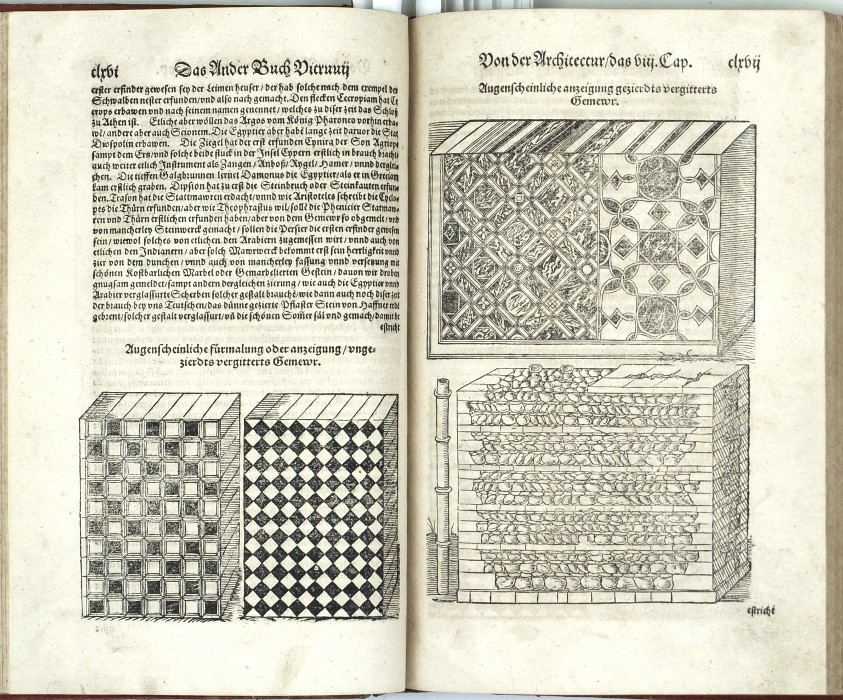 clxvi Das Ander Buch Vitruuij
erster erfinder gewesen sey der Leimen heuser / der hab solche nach dem exempel der
Schwalben nester erfunden / vnd also nach gemacht. Den flecken Cecropiam hat Ce
crops erbawen vnd nach seinem namen genennet / welches zu diser zeit das Schloß
zu Athen ist. Etliche aber wöllen das Argos vom König Pharoneo vorhin erba-
wt / ander aber auch Scionem. Die Egyptier aber habē lange zeit daruor die Stat
Diospolin erbawen. Die Ziegel hat der erst erfunden Cynira der Son Agriope
sampt dem Ertz / vnd solche beide stuck in der Insel Cypern erstlich in brauch bracht /
auch weiter etlich Instrument als Zangen / Anboß / Rygel / Hamer / vnnd derglei-
chen. Die tieffen Galgbrunnen lernet Damonus die Egyptier / als er in Greciam
kam erstlich graben. Dipsion hat zu erst die Steinbruch oder Steinkauten erfun-
den. Trason hat die Stattmawren erdacht / vnnd wie Aristoteles schreibt die Cyclo-
pes die Thürn erfunden / aber wie Theophrastus wil / söllē die Phenicier Statmaw-
ren vnd Thürn erstlichen erfunden haben / aber von dem Gemewr so obgemelt / vnd
von mancherley Steinwerck gemacht / sollen die Persier die ersten erfinder gewesen
sein / wiewol solches von etlichen den Arabiern zugemessen wirt / vnnd auch von
etlichen den Indianern / aber solch Mawrwerck bekommt erst sein herrligkeit vnnd
zier von dem dunchen / vnnd auch von mancherley fassung vnnd versetzung mit
schönen Kostbarlichen Marbel oder Gemarbelierten Gestein / dauon wir droben
gnugsam gemeldet / sampt andern dergleichen zierung / wie auch die Egyptier vnnd
Arabier verglassurte Scherben solcher gestalt brauchē / wie dann auch noch diser zeit
der brauch bey vns Teutschen / das dünne gezierte Pflaster Stein von Haffner erde
gebrent / solcher gestalt verglassurt / vñ die schönen Som̃er sål vnd gemach / damit be
estricht
Augenscheinliche fürmalung oder anzeigung / vnge-
zierdts vergitterts Gemewr.
Von der Architectur / das viij. Cap. clxvij
Augenscheinliche anzeigung gezierdts vergitterts
Gemewr.
estricht